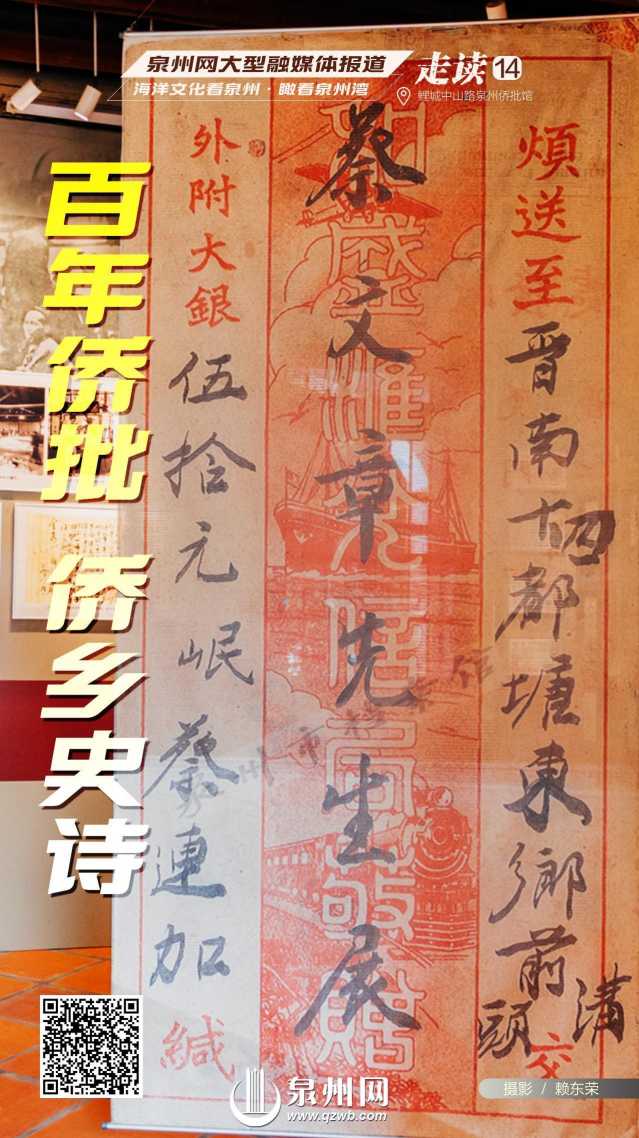 泉州网大型融媒体报道
海洋文化看泉州·瞰看泉州湾
走读14
鲤城中山路泉州侨批馆
百年侨批 侨乡史诗
煩送至晋南十四都塘東鄉前溝頭交
蔡文章先生展
外附大銀伍拾元岷蔡連加緘
摄影 / 赖东荣
泉州网
www.qzwb.com